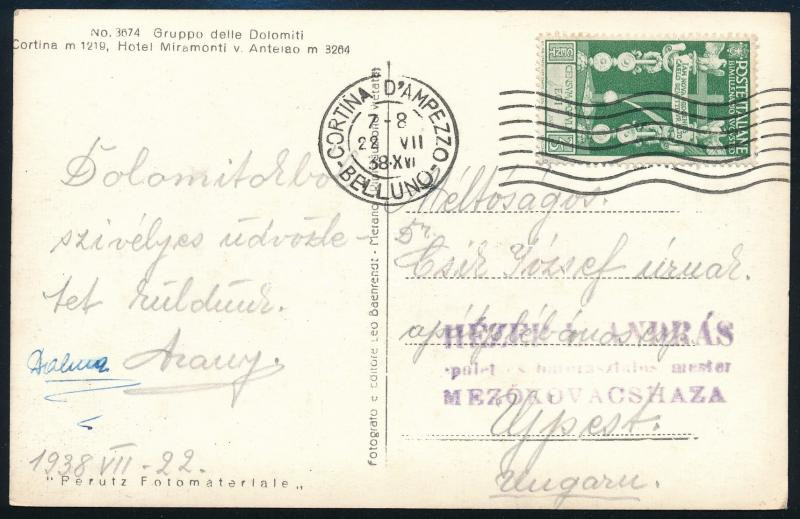 No. 3674 Gruppo delle Dolomiti
Cortina m 1219, Hotel Miramonti v. Antelao m 3264
CORTINA D'AMPEZZO
7-8
22 VII
38·XVI
BELLUNO
POSTE ITALIANE
Dolomitokból
szivélyes üdvözle-
tet küldünk.
Arany.
1938 VII-22.
"Perutz Fotomateriale"
Fotografo e editore Leo Baehrendt - Merano
Méltóságos
Dr.
Csik József úrnak
apátplébános
HÉZER ANDRÁS
mester
MEZŐKOVÁCSHÁZA
Ujpest.
Ungaru.